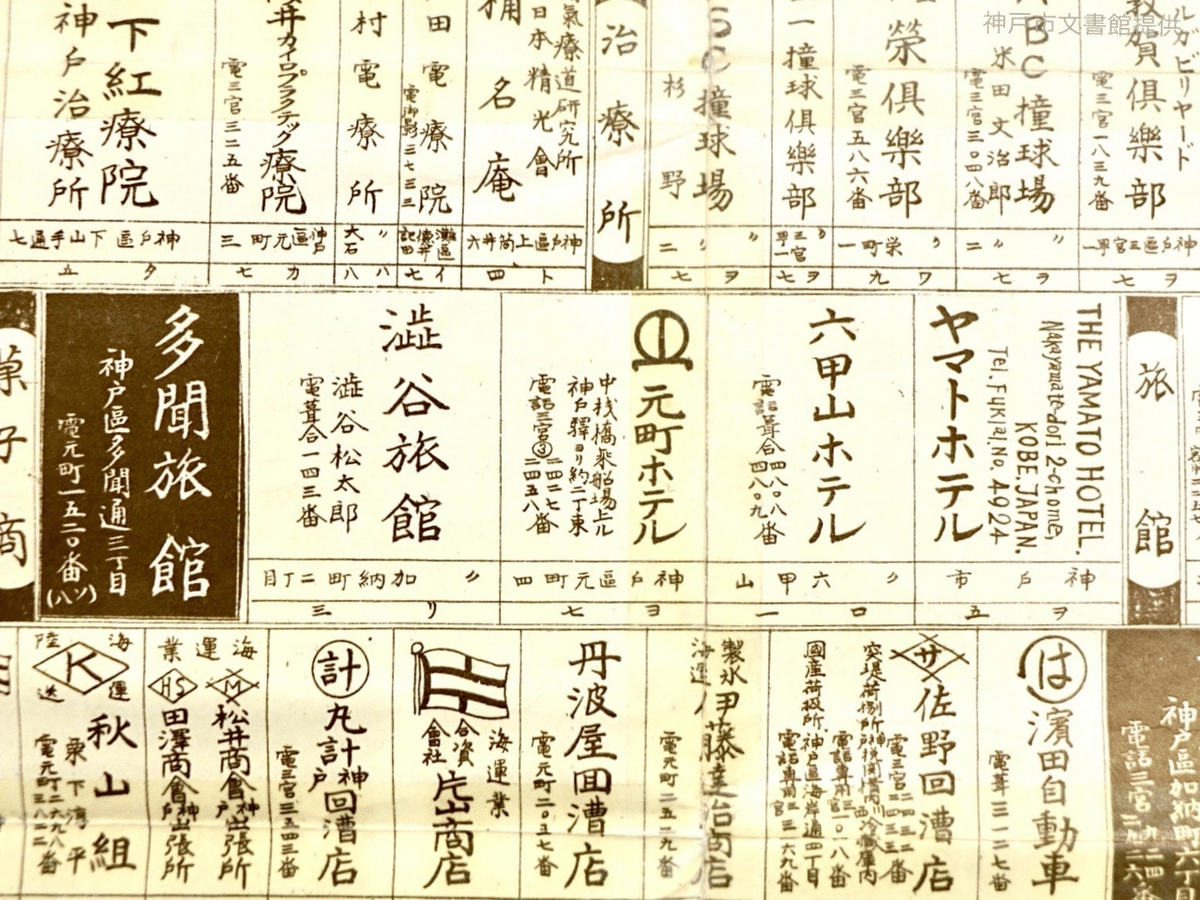 神戸市文書館提供
ルガビリヤード
敦賀倶樂部
電三宮一八三九番
ＢＣ撞球場
米田文治郎
電三宮三〇四八番
榮倶樂部
電三宮五八六番
一撞球倶樂部
撞球場
杉野
治療所
氣療道研究所
日本精光會
名庵
田電療院
電御影三七三三
村電療所
井カイロプラクテック療院
電三宮三二五番
下紅療院
神戸治療所
神戸區三宮町一
〃二
〃榮町一
〃三宮町一
〃二
神戸區上筒井六
〃大石
神戸區元町三
神戸區下山手通七
ヲ七
ヲ七
ワ九
ヲ七
ヲ七
ト四
イ七
ハ八
カ七
タ五
旅館
THE YAMATO HOTEL.
Nakayamate-dori 2-chome,
KOBE, JAPAN.
Tel. Fukiai, No. 4924
ヤマトホテル
六甲山ホテル
電話葺合四八〇八番
四八〇九
元町ホテル
中桟橋乘船場上ル
神戸驛ヨリ約二丁東
電話三宮③二四二七番
二四五八
澁谷旅館
澁谷松太郎
電葺合一四三番
多聞旅館
神戸區多聞通三丁目
電元町一五二〇番
(ハソ)
菓子商
神戸市
〃六甲山
神戸區元町四
〃加納町二丁目
ヲ五
ロ一
ヨ七
リ三
神戸區加納町六丁目
電話三宮
は
濱田自動車
電葺三一二七番
サ
佐野回漕店
國産荷扱所
神戸區海岸通四丁目
丹波屋回漕店
電元町二〇三七番
製氷
海運
伊藤達治商店
電元町二五一九番
海運業
合資會社
片山商店
計
丸計回漕店
神戸
電三宮三五四三番
海運業
M
松井商會神戸出張所
HS
田澤商會神戸出張所
海運
陸送
K
秋山組